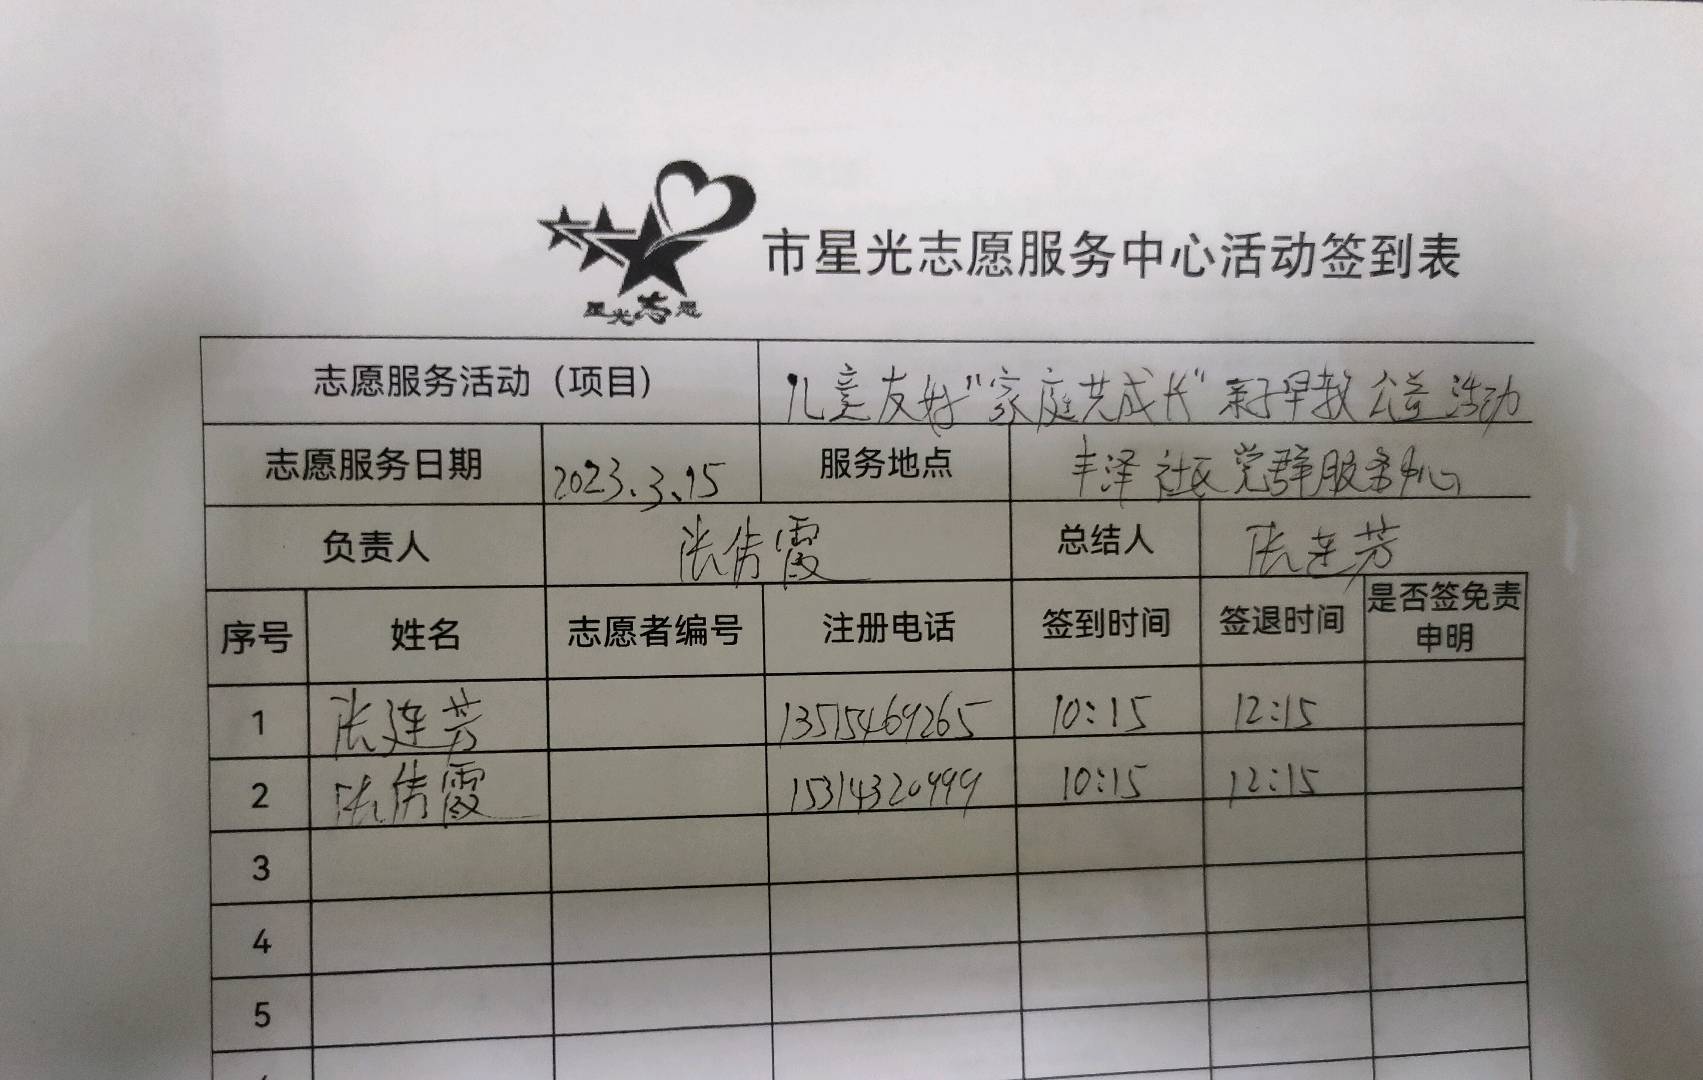 市星光志愿服务中心活动签到表
星光志愿
志愿服务活动（项目） 儿童友好“家庭共成长”亲子早教公益活动
志愿服务日期 2023.3.15 服务地点 丰泽社区党群服务中心
负责人 张倩霞 总结人 张连芳
序号 姓名 志愿者编号 注册电话 签到时间 签退时间 是否签免责申明
1 张连芳 13515469265 10:15 12:15
2 张倩霞 15314320999 10:15 12:15
3
4
5